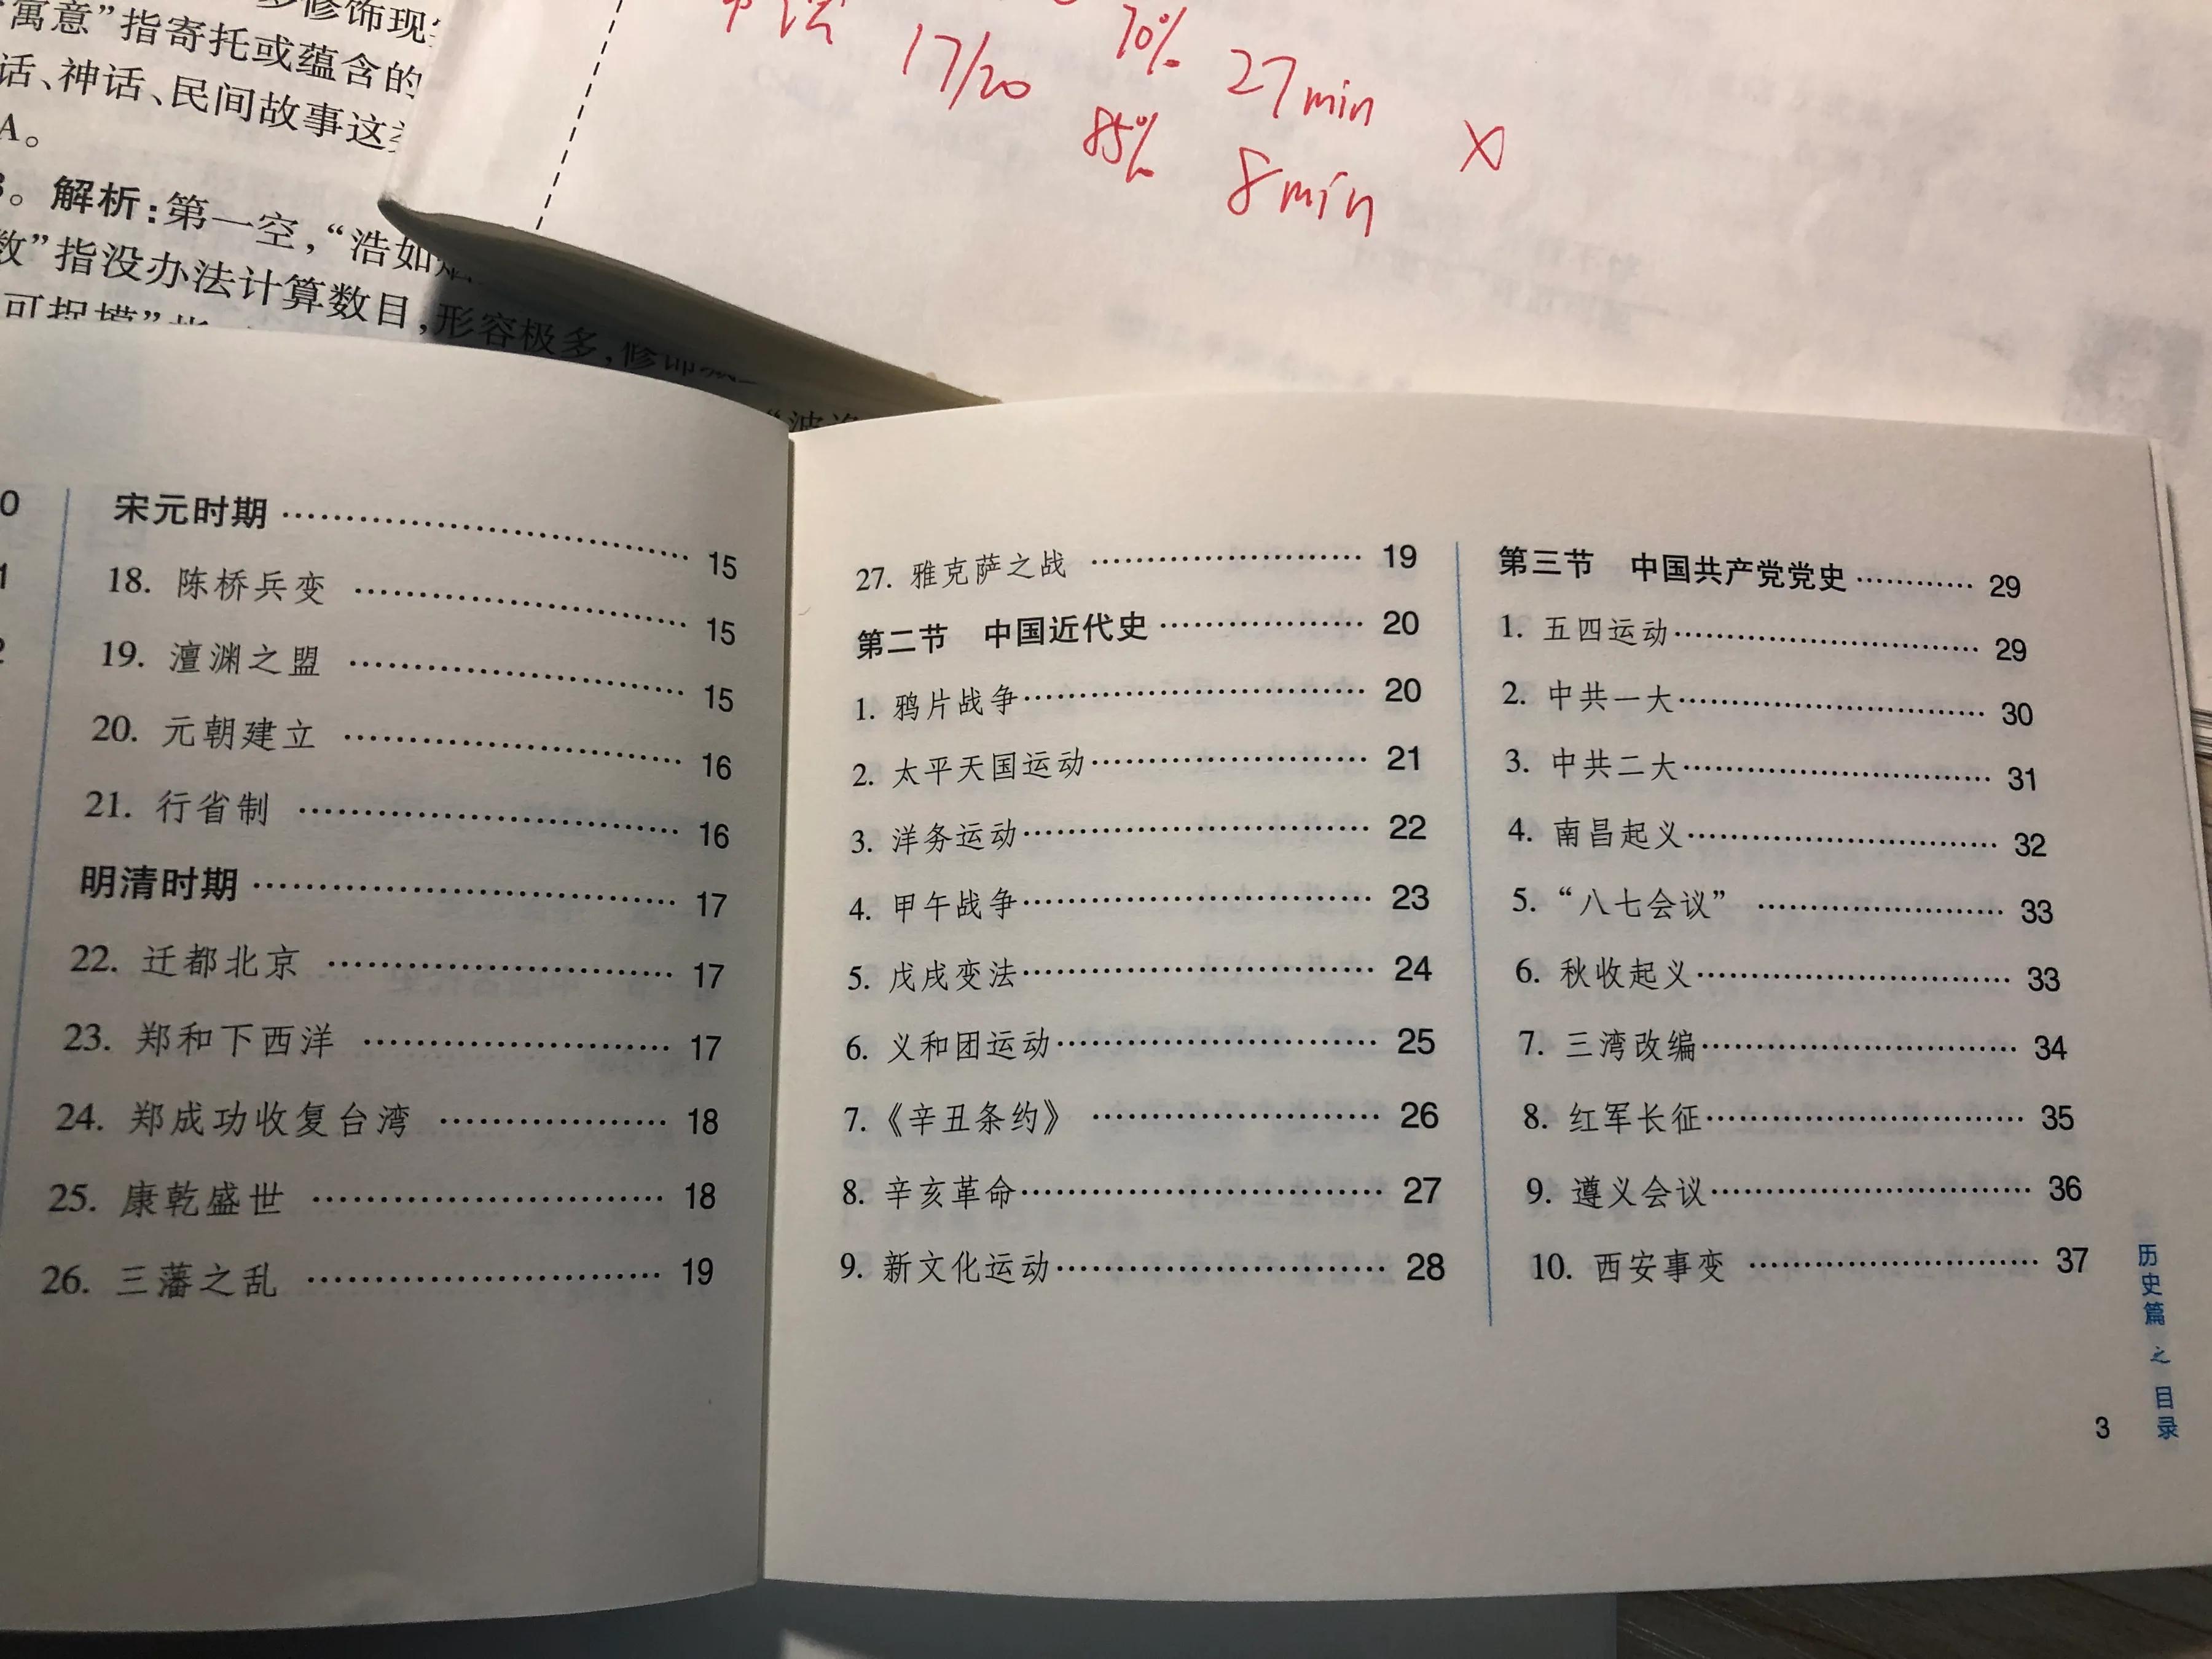 寓意”指寄托或蕴含的
话、神话、民间故事这
A。
。解析：第一空，“浩如
数”指没办法计算数目，形容极多，修饰
17/20
70%
27min
85%
8min
宋元时期 15
18. 陈桥兵变 15
19. 澶渊之盟 15
20. 元朝建立 16
21. 行省制 16
明清时期 17
22. 迁都北京 17
23. 郑和下西洋 17
24. 郑成功收复台湾 18
25. 康乾盛世 18
26. 三藩之乱 19
27. 雅克萨之战 19
第二节 中国近代史 20
1. 鸦片战争 20
2. 太平天国运动 21
3. 洋务运动 22
4. 甲午战争 23
5. 戊戌变法 24
6. 义和团运动 25
7.《辛丑条约》 26
8. 辛亥革命 27
9. 新文化运动 28
第三节 中国共产党党史 29
1. 五四运动 29
2. 中共一大 30
3. 中共二大 31
4. 南昌起义 32
5. “八七会议” 33
6. 秋收起义 33
7. 三湾改编 34
8. 红军长征 35
9. 遵义会议 36
10. 西安事变 37
历史篇之目录
3